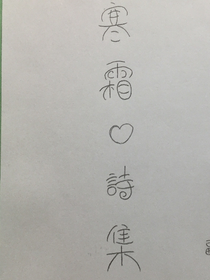 寒霜♡詩集